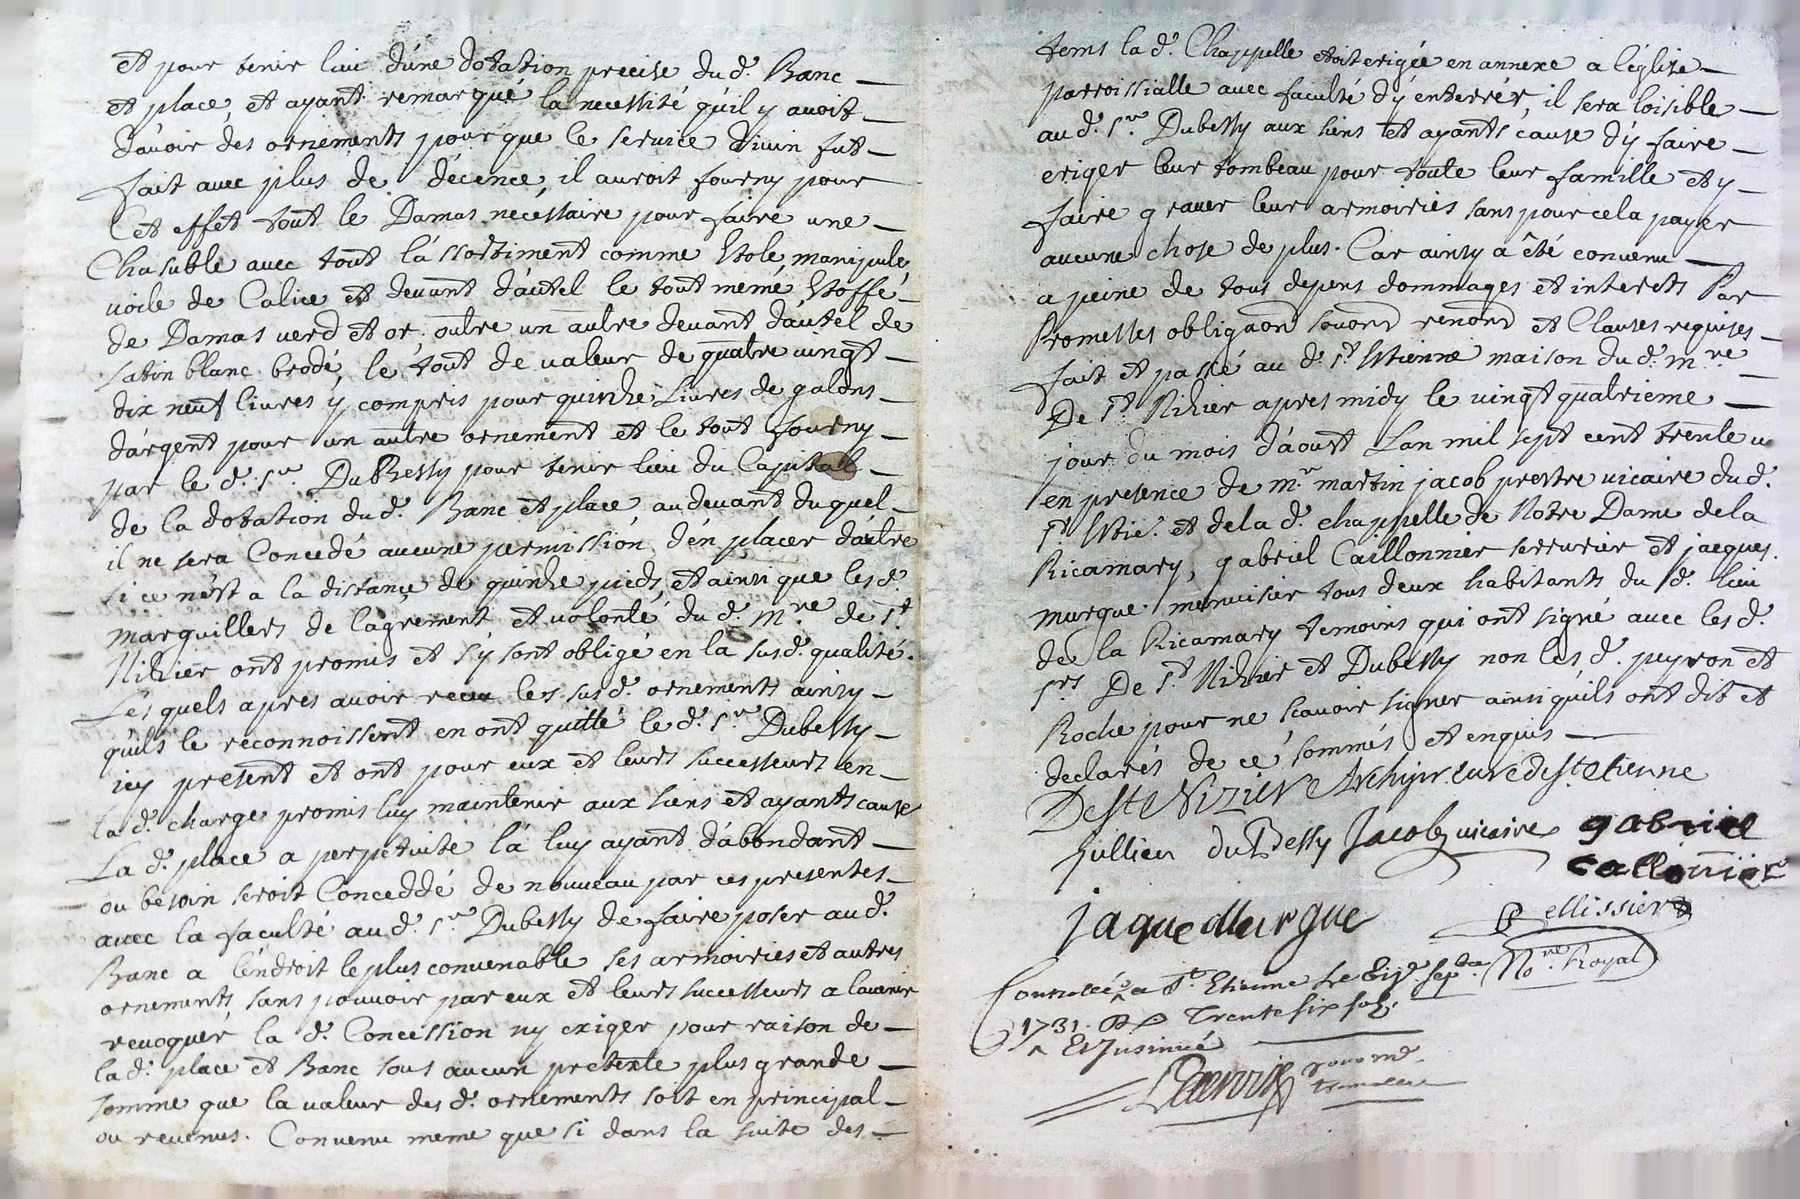 et pour tenir lieu d'une dotation precise du d. Banc
et place, et ayant remarqué la necessité qu'il y avoit
d'avoir des ornements pour que le service divin fut
fait avec plus de décence, il auroit fourny pour
Cet effet tout le Damas necessaire pour faire une
Chasuble avec tout l'assortiment comme Etole, manipule,
voile de Calice et devant d'autel le tout même Etoffe
de Damas verd et or, outre un autre devant d'autel de
satin blanc brodé, le tout de valeur de quatre vingt
dix neuf livres y compris pour quinze Livres de galons
d'argent pour un autre ornement et le tout fourny
par le d. Sr. DuBessy pour tenir lieu du Capital
de la dotation du d. Banc et place au devant duquel
il ne sera Concedé aucune permission d'en placer d'autre
si ce n'est a la distance de quinze pieds, et ainsi que les d.
marguilliers de l'agrement et volonté du d. Mre. de St.
Nizier ont promis et s'y sont obligé en la susd. qualité.
Lesquels apres avoir receu les susd. ornements ainsy
qu'ils le reconnoissent en ont quitté le d. Sr. Dubessy
icy present et ont pour eux et leurs successeurs en
la d. charge promis luy maintenir aux siens et ayants cause
La d. place a perpetuite la luy ayant d'abondant
ou besoin seroit Conceddé de nouveau par ces presentes
avec la faculté au d. Sr. Dubessy de faire poser au d.
Banc a l'endroit le plus convenable ses armoiries et autres
ornements sans pouvoir par eux et leurs successeurs a l'avenir
revoquer la d. Concession ny exiger pour raison de
la d. place et Banc sous aucun pretexte plus grande
somme que la valeur des d. ornements soit en principal
ou revenus. Convenu meme que si dans la suite des
tems la d. Chappelle etoit erigée en annexe a l'église
parroissialle avec faculté d'y enterrer, il sera loisible
au d. Sr. Dubessy aux siens et ayants cause d'y faire
eriger leur tombeau pour toute leur famille et y
faire graver leur armoiries sans pour cela payer
aucune chose de plus. Car ainsy a été convenu
a peine de tous depens dommages et interets Par
Promesses obligaon soumon renon et Clauses requises
fait et passé au d. St. Etienne maison du d. mre
De St. Nizier apres midy le vingt quatrieme
jour du mois d'aoust Lan mil sept cent trente u
en presence de mr. martin jacob prestre vicaire du d.
St. Etie. et de la d. chappelle de Notre Dame de la
Ricamary, gabriel Caillonnier serrurier et jacques
murgue menuisier tous deux habitants du d. lieu
de la Ricamary temoins qui ont signé avec les d.
srs De St. Nizier et Dubessy non les d. peyron et
Roche pour ne scavoir signer ainsi qu'ils ont dit et
declarés de ce sommés et enquis
De St Nizier Archipr. curé de St Etienne
jullien du Bessy Jacob vicaire gabriel
callonnier
jaque Murgue
Pellissier
Nore. Royal
Controllé a St. Etienne Le sepbre
1731. Trente six sols
Et Insinué